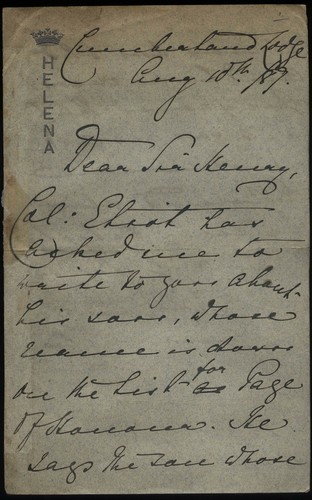 HELENA
Cumberland Lodge
Aug 10th /87.
Dear Sir Henry,
Col: Eliot has
asked me to
write to you about
his son, whose
name is down
on the List for Page
of Honour. He
says the son whose